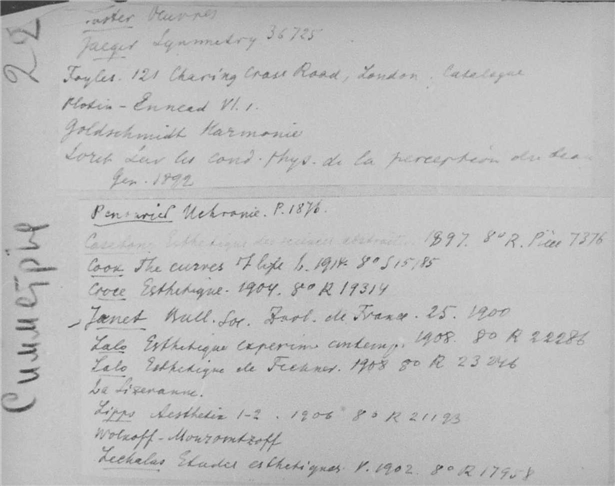 22
Симметрия
Oeuvres
Jaeger Symmetry 36725
Foyles. 121 Charing Cross Road, London. Catalogue
Plotin - Ennead VI.1.
Goldschmidt Harmonie
Soret Sur les cond. phys. de la perception du beau
Gen. 1892
Uchronie. P. 1876.
Esthetique des sciences abstraites. 1897. 8º R. Pièce 7376
Cook The curves of life L. 1914. 8º S 15185
Croce Esthetique. 1904. 8º R 19314
Janet Bull. Soc. de France. 25. 1900
Lalo Esthetique experim contemp. 1908. 8º R 22286
Lalo Esthetique de Fechner. 1908 8º R
La Sizeranne.
Lipps Aesthetik 1-2. 1906 8º R 21193
Wolkoff-Mouromtzoff
Lechalas Etudes esthetiques. P. 1902. 8º R 17958